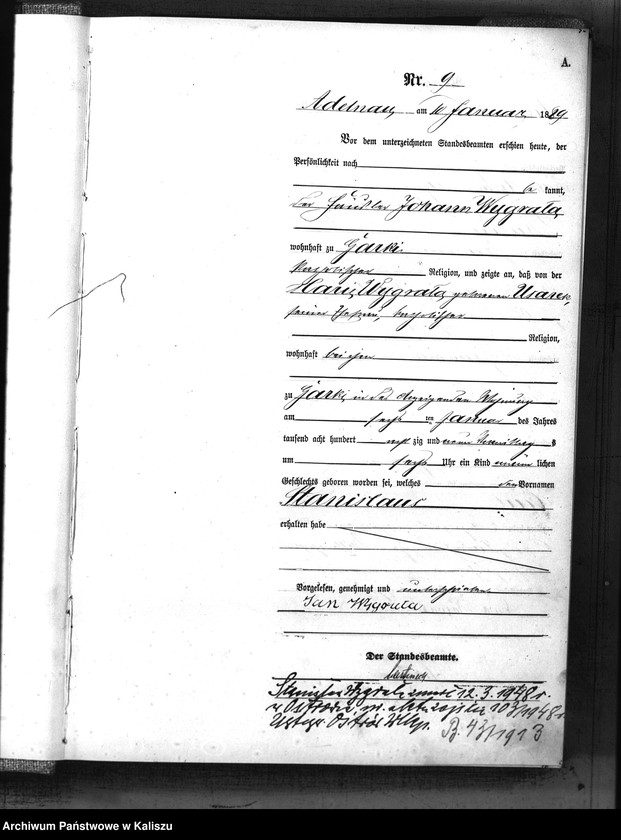 A.
Nr. 9
Adelnau, am 10 Januar 1889
Vor dem unterzeichneten Standesbeamten erschien heute, der
Persönlichkeit nach
be kannt,
der Häusler Johann Wygrala,
wohnhaft zu Garki,
katholischer Religion, und zeigte an, daß von der
Marie Wygrala, geborenen
seiner Ehefrau, katholischer
Religion,
wohnhaft bei ihm
zu Garki, in der Wohnung
am sechs ten Januar des Jahres
tausend acht hundert acht zig und neun Vormittag s
um sechs Uhr ein Kind männ lichen
Geschlechts geboren worden sei, welches den Vornamen
Stanislaus
erhalten habe
Vorgelesen, genehmigt und unterschrieben
Jan Wygrała
Der Standesbeamte.
Stanisław Wygrała zmarł 12.3.1948 r.
w Ostrowie, nr. aktu zejścia 103/1948 r.
Ostrów Wlkp.
B. 43/1913
Archiwum Państwowe w Kaliszu